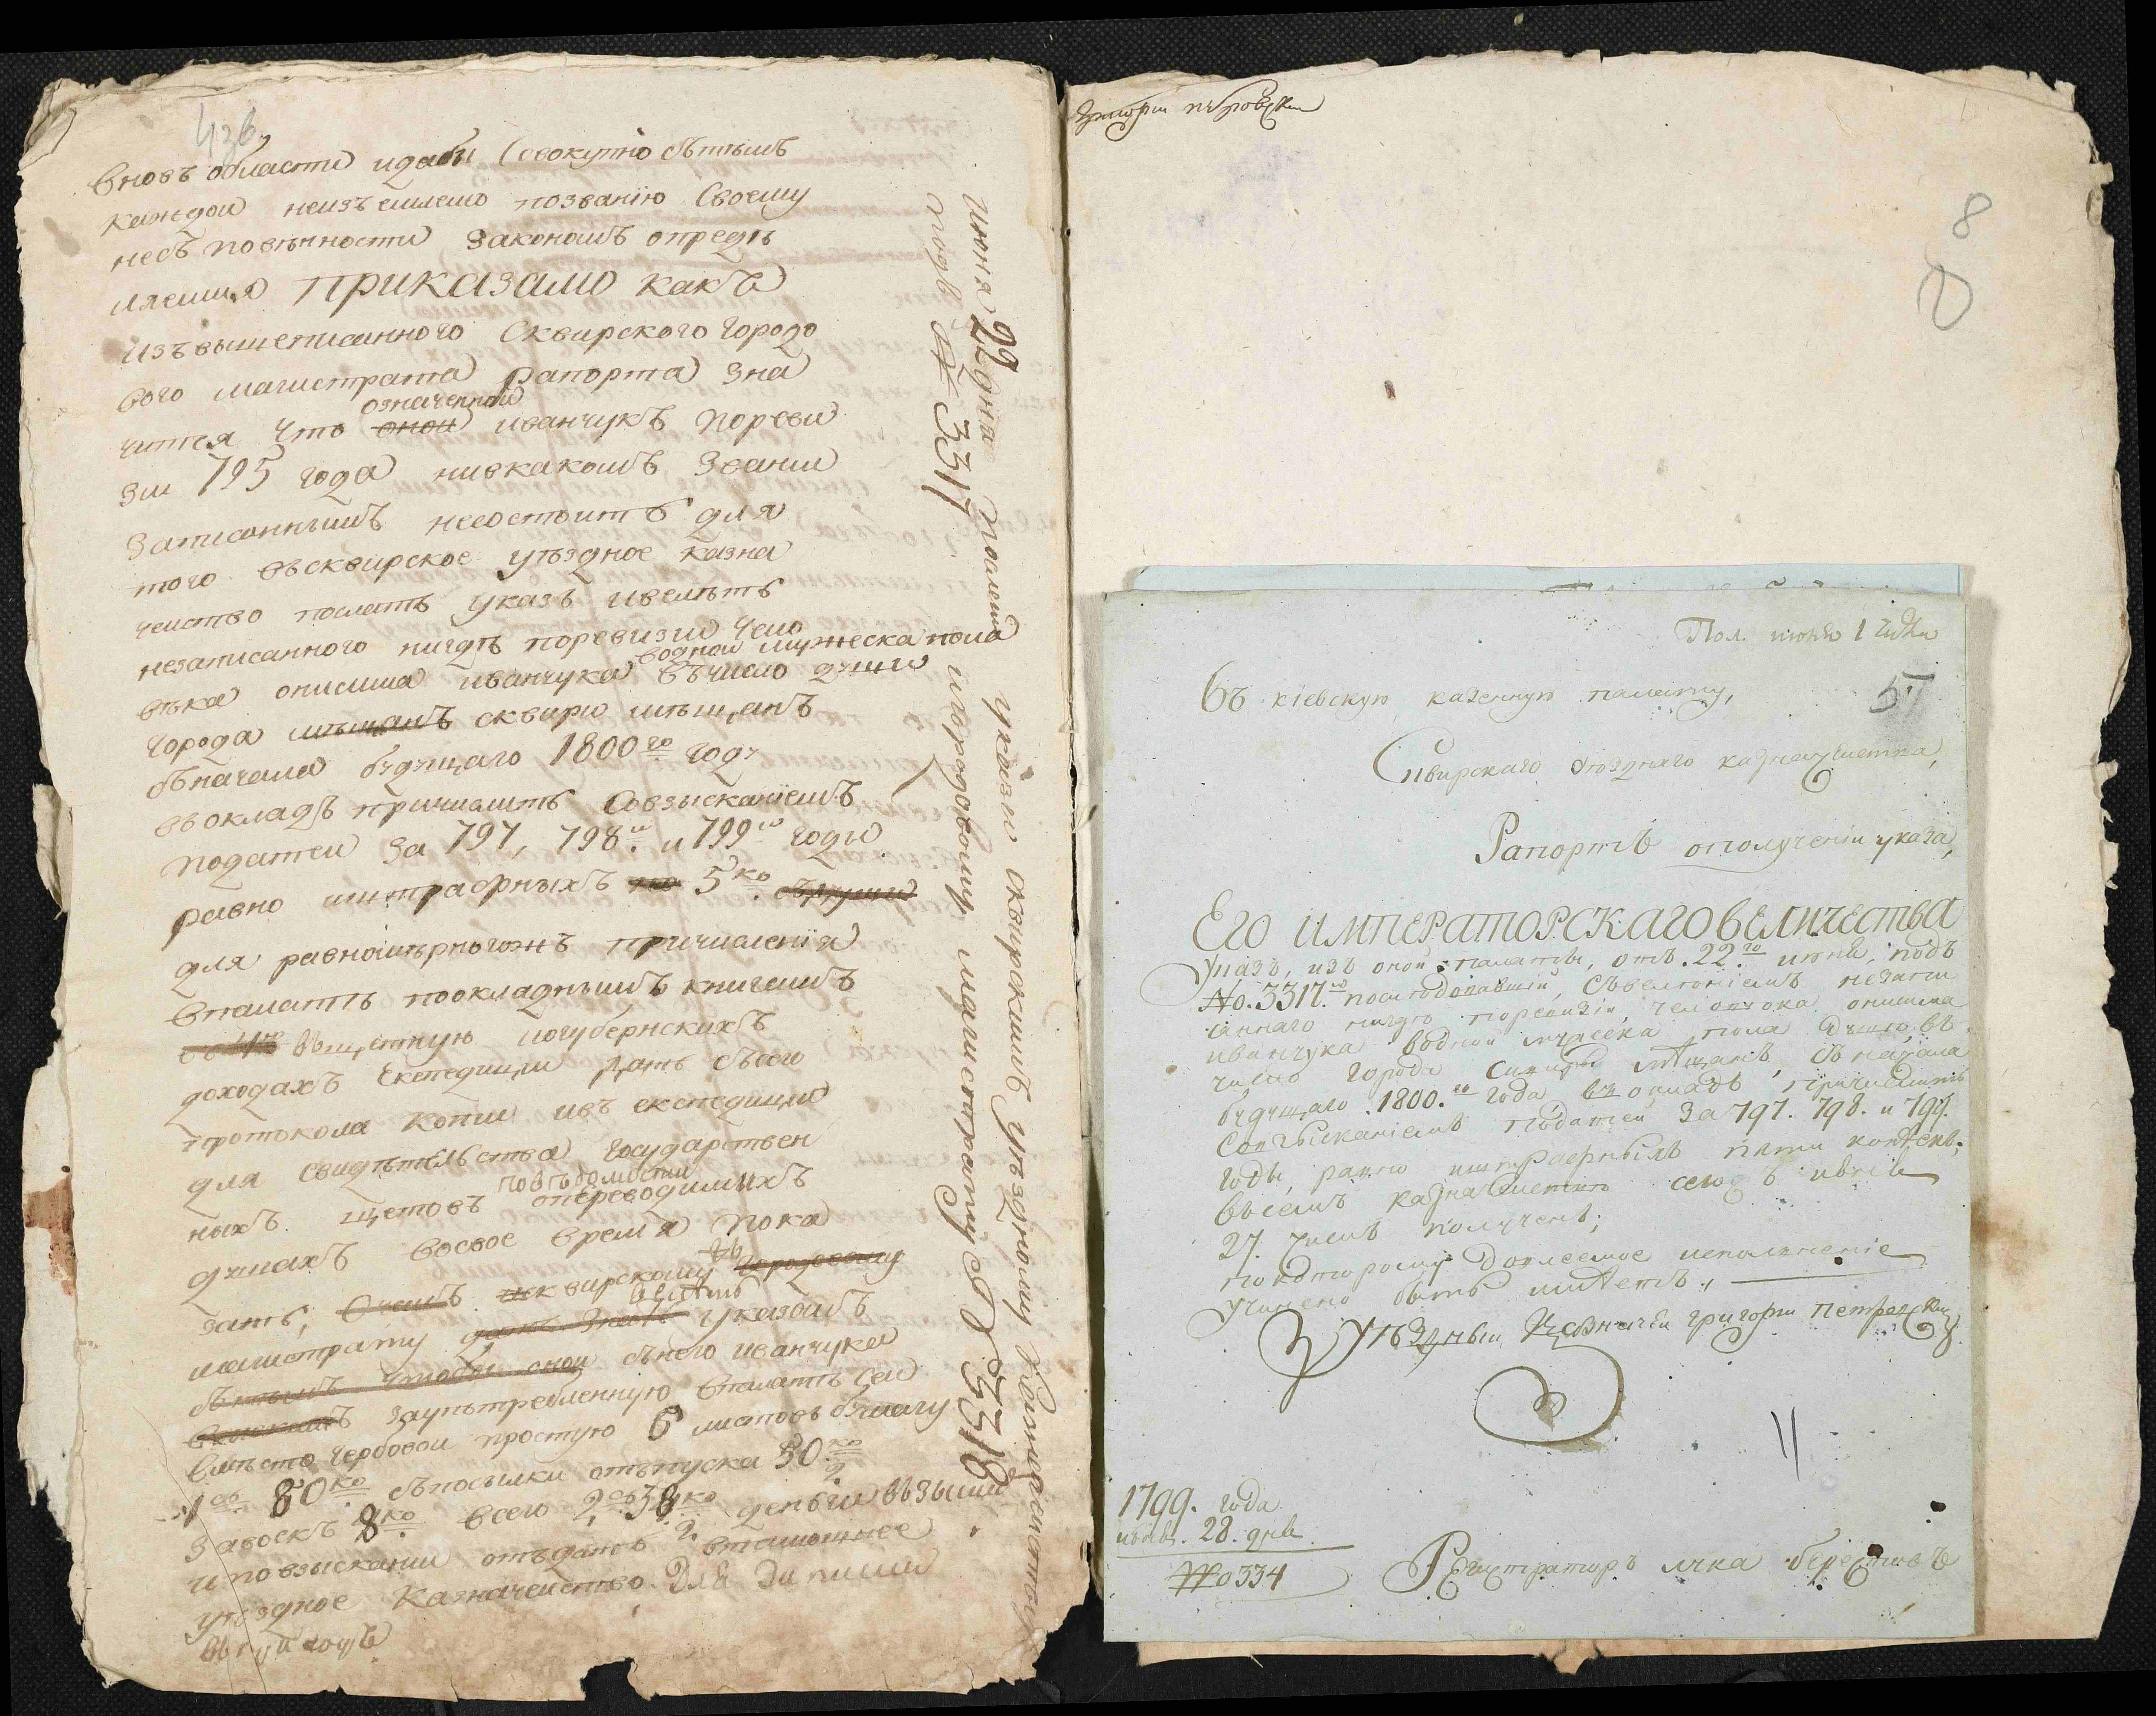 436
вновь области идабы совокупно сътѣмъ
каждои неизъемлемо позванію своему
несъ повѣнности закономъ опредѣ
ляемыя приказали какъ
изъвышеписанного сквирского городо
вого магистрата рапорта зна
чится что оной означенной иванчукъ пореви
зіи 795 года нивкакомъ звании
записаннымъ несостоитъ для
того въсквирское уѣздное казна
чеиство послать указъ ивелѣть
незаписанного нигдѣ поревизіи чело
вѣка онисима иванчука водной мужеска пола въчисло души
города мѣщанъ сквири мѣщанъ
съначала будущаго 1800го году
воокладъ причислить совзысканіемъ
податеи за 797, 798и и 799и годы
равно штрафныхъ по 5ко съдуши
для равномѣрногожъ причисленія
впалатѣ поокладнымъ книгамъ
въщетную погубернскихъ
доходахъ експедиціи дать съсего
протокола копіи ивъ експедицию
для свидѣтельства государствен
ныхъ щетовъ повѣдомости опереводимыхъ
душахъ восвое время пока
зать, Очемъ сквирскому городовому
магистрату дать знать велѣть указомъ
сътѣмъ чтобы оной снего иванчука
взыскавъ заупотребленную впалатѣ сеи
вмѣсто гербовои простую 6 листовъ бумагу
1ru 80ко съпосылки отъпуска 50ко
завоскъ 8ко всего 2ru 38ко денги взыскать
иповзыскании отъдать втамошнее
уѣздное казначеиство для записки
июня 22 дня посланы указы сквирскимъ уѣздному казначеиству
подъ № 3317 игородовому магистрату № 3318
григори петровски
8
Пол. июня 1 1799
57
Въ кіевскую казенную палату,
Сквирскаго уѣзднаго казначеиства,
Рапортъ ополученіи указа,
Его императорскаго величества
указъ, изъ оной палаты, отъ 22го июня, подъ
No. 3317мъ последовавшій, съвелѣніемъ незапи
саннаго нигдѣ поревизіи, человѣка онисима
иванчука водной мужеска пола душѣ, въ
число города сквиры мѣщанъ, съначала
будущаго 1800го года въ окладъ причислить
совзысканіемъ податеи за 797. 798. и 799.
годы, равно штрафныхъ пяти копѣекъ,
въсемъ казначеистве сего июня
27. числъ полученъ;
покоторому должное исполненіе
учинено быть имѣетъ.,
уѣздный казначеи григори петровски
1799. года
июня. 28. дня
No 334
Регистраторъ лука берестовъ